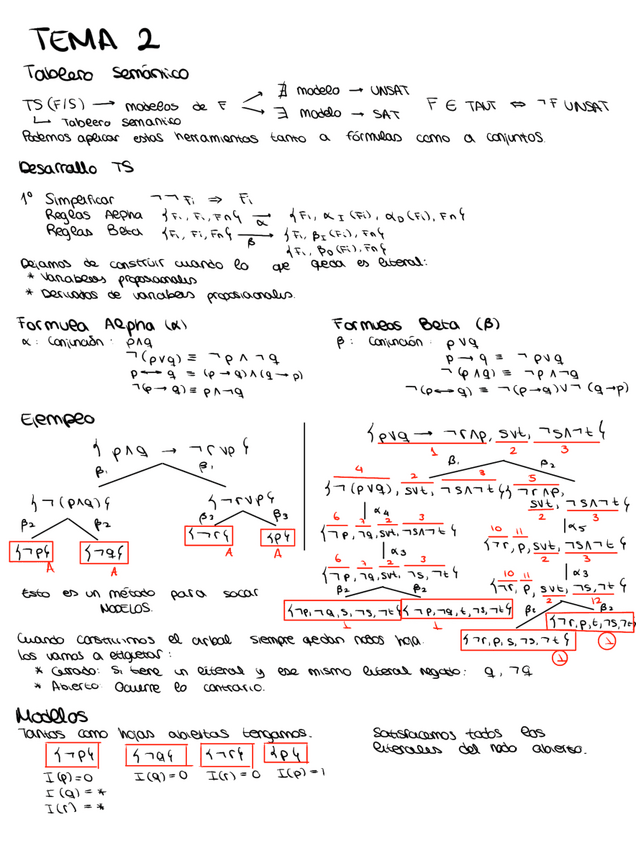 TEMA 2
Tablero semánico
TS (F/S) → modelos de F
∄ modelo → UNSAT
∃ modelo → SAT
F ∈ TAUT ⇔ ¬F UNSAT
↳ Tablero semanico
Podemos aplicar estas herramientas tanto a fórmulas como a conjuntos.
Desarrallo TS
1º Simplificar ¬¬Fi ⇒ Fi
Reglas Alpha {F1, Fi, Fn} →α {F1, αI(Fi), αD(Fi), Fn}
Reglas Beta {F1, Fi, Fn} →β {F1, βI(Fi), Fn}
{F1, βD(Fi), Fn}
Dejamos de construir cuando lo que queda es literal:
* Variables proposionales
* Derivados de variables proposicionales.
Formula Alpha (α)
α: Conjunción: p∧q
¬(p∨q) ≡ ¬p ∧ ¬q
p ↔ q ≡ (p→q)∧(q→p)
¬(p→q) ≡ p∧¬q
Formulas Beta (β)
β: Conjunción: p∨q
p → q ≡ ¬p∨q
¬(p∧q) ≡ ¬p∧¬q
¬(p↔q) ≡ ¬(p→q)∨¬(q→p)
Ejemplo
{p∧q → ¬r∨p}
β1 β1
{¬(p∧q)} {¬r∨p}
β2 β2 β3 β3
{¬p} {¬q} {¬r} {p}
A A A A
Esto es un método para sacar
MODELOS.
{p∨q → ¬r∧p, s∨t, ¬s∧¬t}
1 2 3
β1 β2
4 2 3 5
{¬(p∨q), s∨t, ¬s∧¬t} {¬r∧p,
s∨t, ¬s∧¬t}
2 3
α4 α5
6 7 2 3
{¬p, ¬q, s∨t, ¬s∧¬t}
10 11
{¬r, p, s∨t, ¬s∧¬t}
2 3
α3 α3
6 7 2 3
{¬p, ¬q, s∨t, ¬s, ¬t}
10 11
{¬r, p, s∨t, ¬s, ¬t}
2 12
β2 β2 β2 β2
{¬p, ¬q, s, ¬s, ¬t} {¬p, ¬q, t, ¬s, ¬t}
{¬r, p, t, ¬s, ¬t}
{¬r, p, s, ¬s, ¬t}
Cuando construimos el arbol siempre quedan nodos hoja.
Los vamos a etiquetar:
* Cerrado: Si tiene un literal y ese mismo literal negado: q, ¬q
* Abierto: Ocurre lo contrario.
Modelos
Tantos como hojas abiertas tengamos.
{¬p} {¬q} {¬r} {p}
I(p)=0 I(q)=0 I(r)=0 I(p)=1
I(q)=*
I(r)=*
Satisfacemos todos los
literales del nodo abierto.